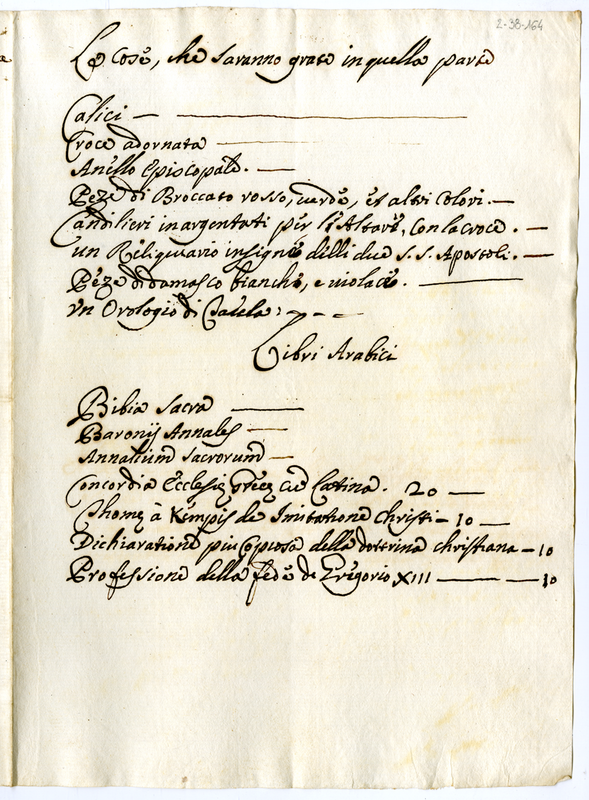 2-38-164
Le Cose, che saranno grate in quella parte
Calici —
Croce adornata
Anello Episcopale. —
Peze di Broccato rosso, verde, et altri Colori. —
Candilieri inargentati per li Altari, con la croce. —
un Reliquiario insigne delli due S.S. Apostoli. —
Peze di damasco bianche, e violace. —
Un Orologio di
Libri Arabici
Bibia sacra —
Baronij Annales —
Annalium Sacrorum —
Concordia Ecclesię Gręcę cū Latina. 20 —
Thomę à Kempis de Imitatione Christi — 10 —
Dichiaratione piu copiosa della dottrina christiana — 10
Professione della fede de Gregorio XIII — — 10